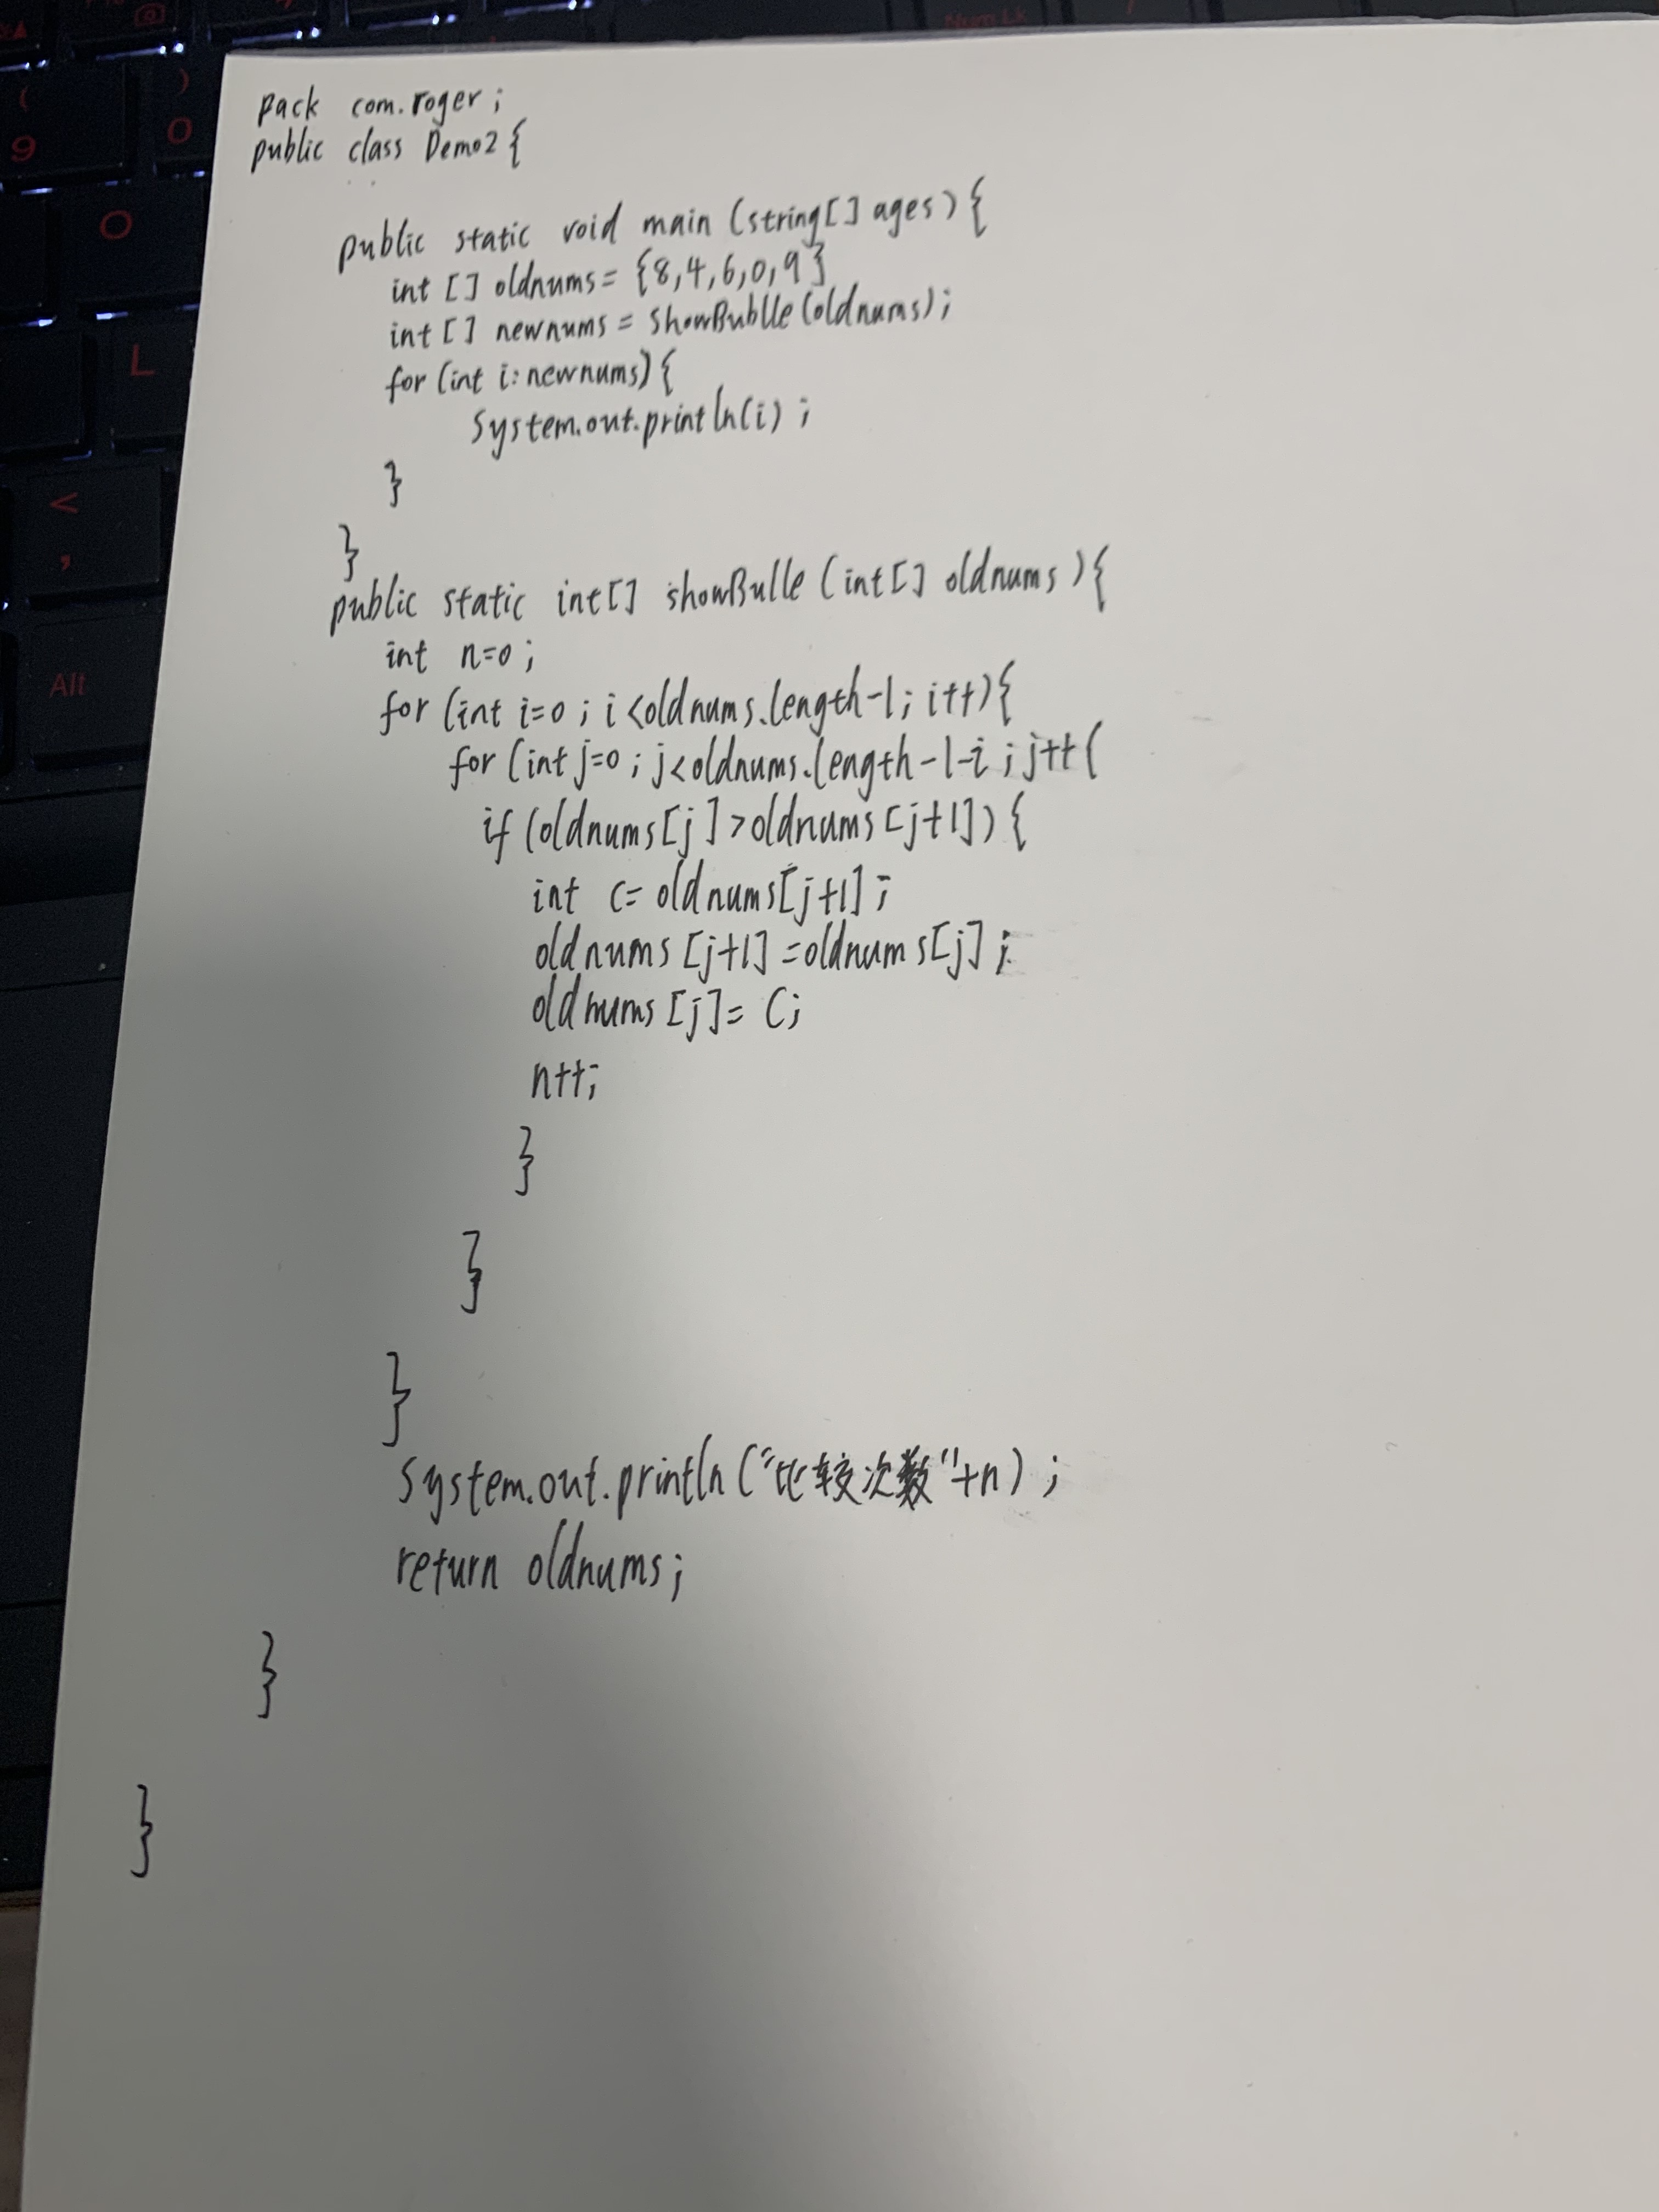 pack com.roger;
public class Demo2{
public static void main (string[] ages){
int [] oldnums= {8,4,6,0,9}
int [] newnums = showBublle(oldnums);
for (int i:newnums){
System.out.println(i);
}
}
public static int[] showBulle (int[] oldnums){
int n=0;
for (int i=0; i<oldnums.length-1; i++){
for (int j=0; j<oldnums.length-1-i; j++(
if (oldnums[j]>oldnums[j+1]){
int c= oldnums[j+1];
oldnums[j+1]=oldnums[j];
oldnums[j]= C;
n++;
}
}
}
System.out.println("比较次数"+n);
return oldnums;
}
}
(
9
)
0
O
L
<
,
Alt
Num Lk